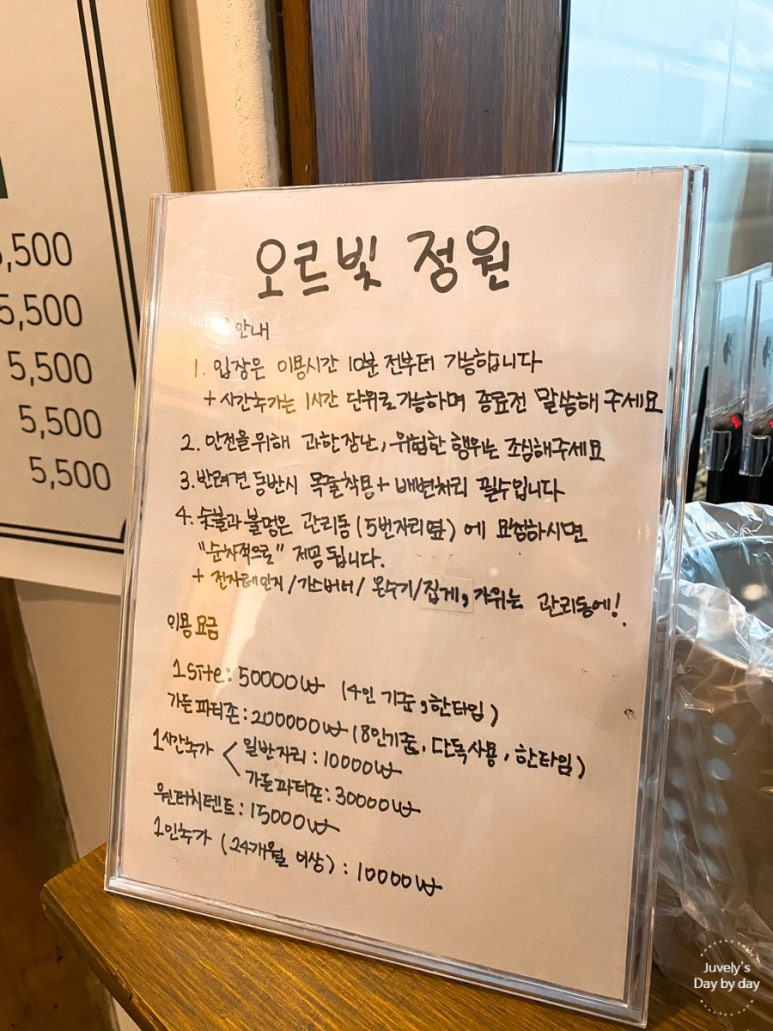 ,500
5,500
5,500
5,500
5,500
오르빛 정원
안내
1. 입장은 이용시간 10분 전부터 가능합니다
+ 시간추가는 1시간 단위로 가능하며 종료전 말씀해 주세요
2. 안전을 위해 과한 장난, 위험한 행위는 조심해주세요
3. 반려견 동반시 목줄착용 + 배변처리 필수입니다
4. 숯불과 불멍은 관리동 (5번자리 옆) 에 요청하시면
"순차적으로" 제공 됩니다.
+ 전자레인지 / 가스버너 / 온수기 / 집게, 가위는 관리동에!
이용 요금
1 site : 50000₩ (4인 기준, 한타임)
가든파티존 : 200000₩ (8인기준, 단독사용, 한타임)
1시간추가 < 일반자리 : 10000₩
가든파티존 : 30000₩
원터치텐트 : 15000₩
1인추가 (24개월 이상) : 10000₩
Juvely's
Day by day